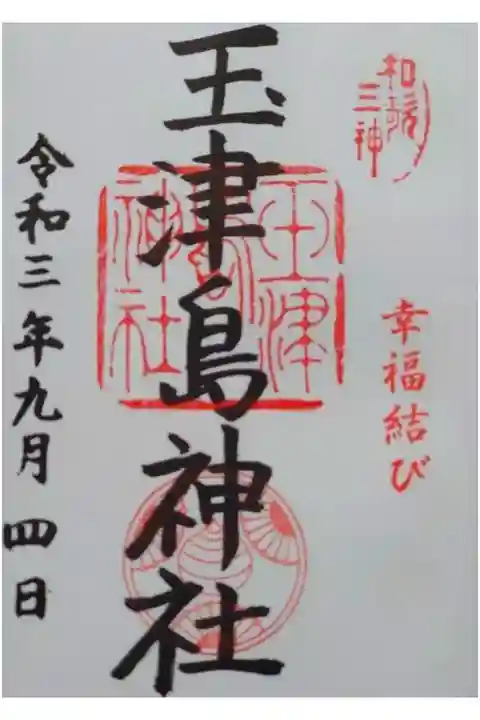 和歌三神
幸福結び
玉津島神社
玉津島神社
令和三年九月四日